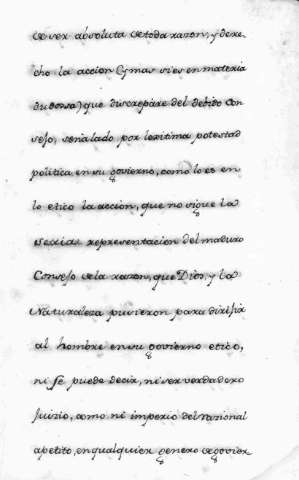 de ser absoluta detoda razon, y dere
cho la accion (y mas si es en materia
dudosa) que discrepàre del debido Con
sejo, señalado por lexitima potestad
politica en su govierno, como lo es en
lo etico la accion, que no sigue la
seria representacion del maduro
Consejo de la razon, que Dios, y la
Naturaleza pusieron para dirijir
al hombre en su govierno etico,
ni se puede decir, ni ser verdadero
Juizio, como ni imperio del racional
apetito, en qualquier genero de govier